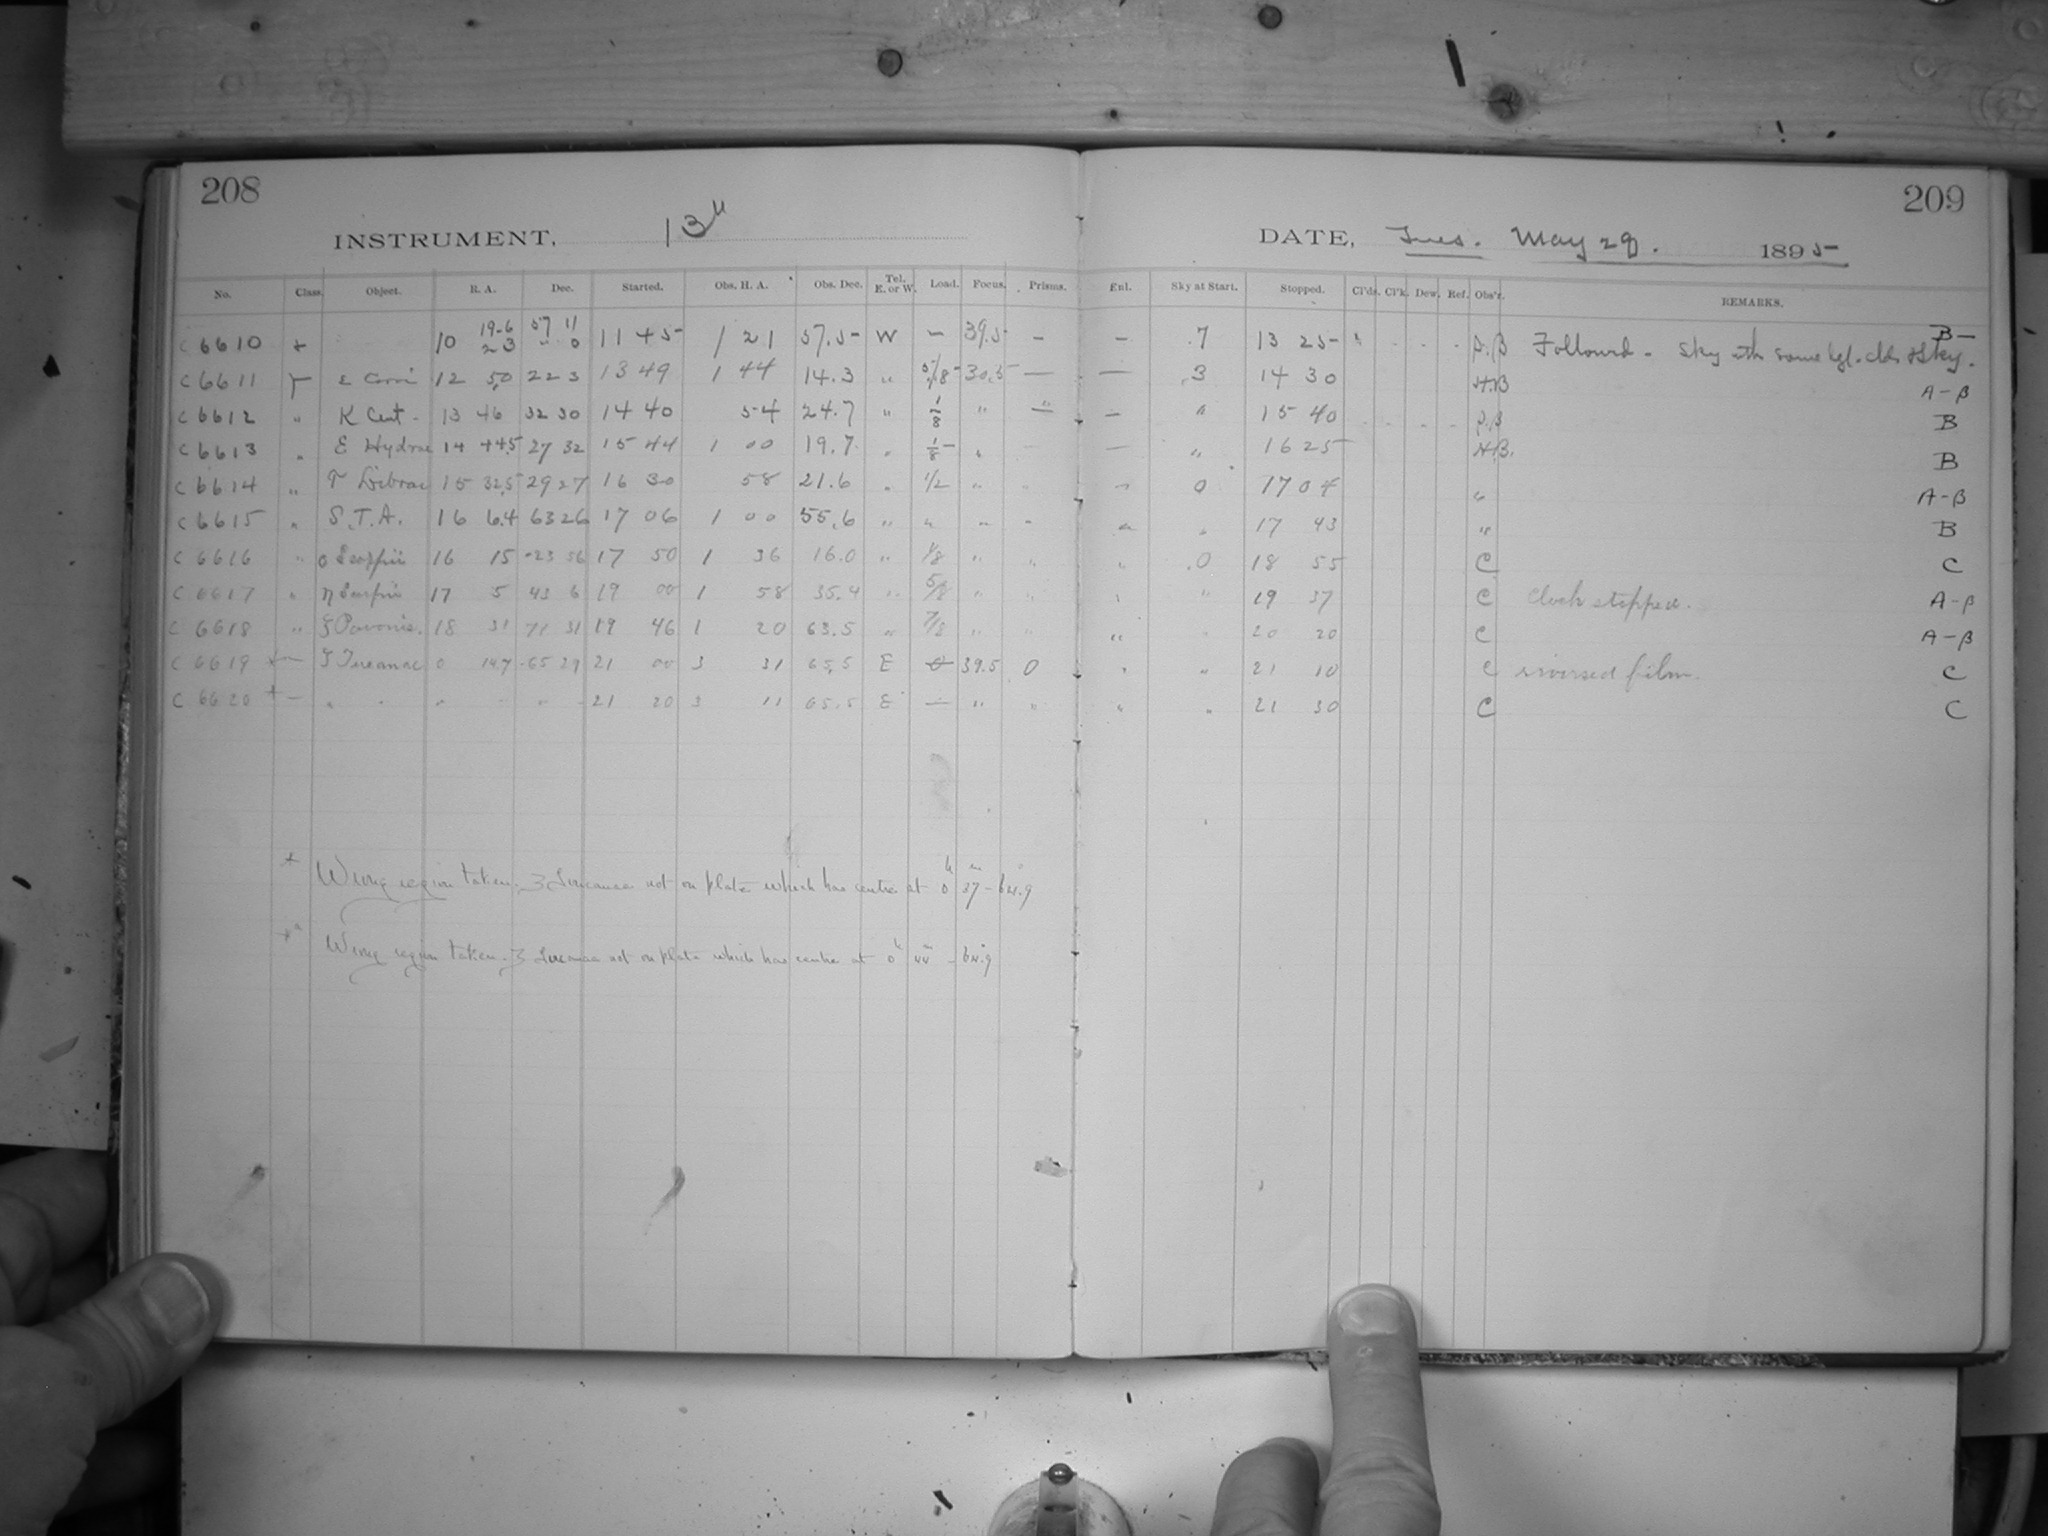 208
INSTRUMENT, 13"
No. Class. Object. R. A. Dec. Started. Obs. H. A. Obs. Dec. Tel. E. or W. Load. Focus. Prisms.
C 6610 10 19.6 57 11 11 45 1 21 57.5 W — 39.5 —
23 " 0
C 6611 12 50 22 3 13 49 1 44 14.3 " 5/8 30.5 —
C 6612 " K Cent. 13 46 32 30 14 40 54 24.7 " 1/8 " "
C 6613 " E Hydrae 14 44.5 27 32 15 44 1 00 19.7 " 1/8 "
C 6614 " T Librae 15 32.5 29 27 16 30 58 21.6 " 1/2 " "
C 6615 " S.T.A. 16 6.4 63 26 17 06 1 00 55.6 " " " "
C 6616 " o Scorpii 16 15 -23 56 17 50 1 36 16.0 " 1/8 " "
C 6617 " η Scorpii 17 5 43 6 19 00 1 58 35.4 " 5/8 " "
C 6618 " ξ Pavonis. 18 31 71 31 19 46 1 20 63.5 " 7/8 " "
C 6619 * — ζ Tucanae 0 14.7 -65 29 21 00 3 31 65.5 E 0 39.5 0
C 6620 * — " " " " 21 20 3 11 65.5 E — " "
* Wrong region taken. ζ Tucanae not on plate which has centre at 0h 37m -64.9
** Wrong region taken. ζ Tucanae not on plate which has centre at 0h 44m -64.9
209
DATE, Tues. May 28. 1895
Enl. Sky at Start. Stopped. Cl'ds. Cl'k. Dew. Ref. Obs'r. REMARKS.
— .7 13 25 Followed. Sky B—
— .3 14 30 H.B A-B
— " 15 40 B
— " 16 25 H.B. B
" 0 17 04 " A-B
" " 17 43 " B
" .0 18 55 C C
" " 19 37 C Clock stopped. A-B
" " 20 20 C A-B
" " 21 10 C reversed film. C
" " 21 30 C C